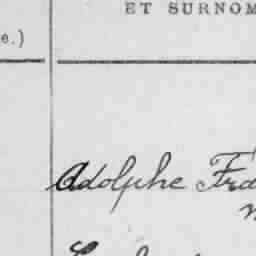 ET SURNOM
e.)
Adolphe Fra